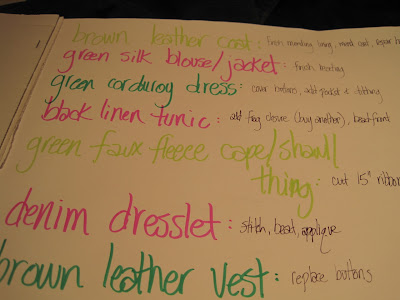 brown leather coat: finish mending lining, mend coat, repair
green silk blouse/jacket: finish beading
green corduroy dress: cover buttons, add pocket & stitching
black linen tunic: add frog closure (buy another), bead front
green faux fleece cape/shawl
thing: cut 15" ribbon
denim dresslet: stitch, bead, applique
brown leather vest: replace buttons